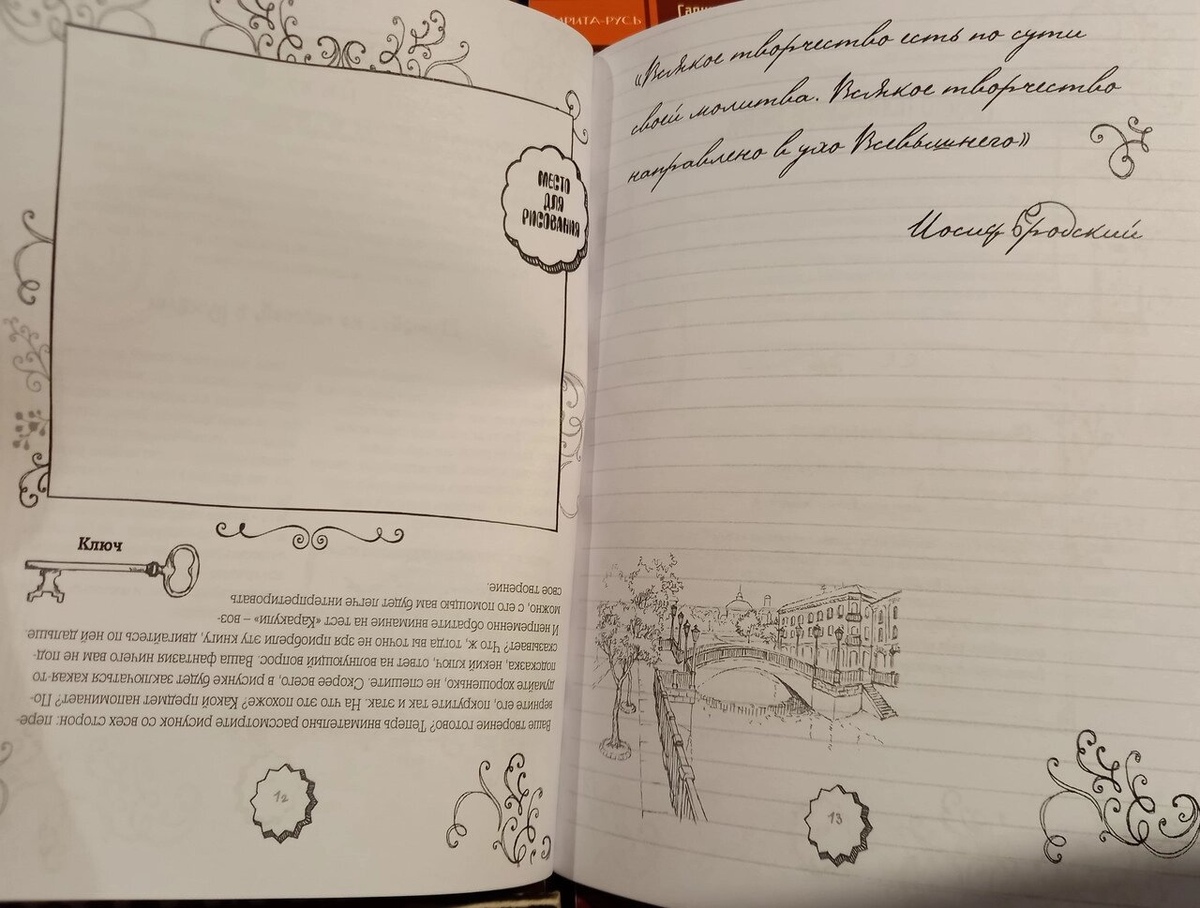 АРИТА-РУСЬ
МЕСТО
ДЛЯ
РИСОВАНИЯ
Ключ
Ваше творение готово? Теперь внимательно рассмотрите рисунок со всех сторон: пере-
верните его, покрутите так и этак. На что это похоже? Какой предмет напоминает? По-
думайте хорошенько, не спешите. Скорее всего, в рисунке будет заключаться какая-то
подсказка, некий ключ, ответ на волнующий вопрос. Ваша фантазия ничего вам не под-
сказывает? Что ж, тогда вы точно не зря приобрели эту книгу, двигайтесь по ней дальше.
И непременно обратите внимание на тест «Каракули» – воз-
можно, с его помощью вам будет легче интерпретировать
свое творение.
12
«Всякое творчество есть по сути
своей молитва. Всякое творчество
направлено в ухо Всевышнего»
Иосиф Бродский
13